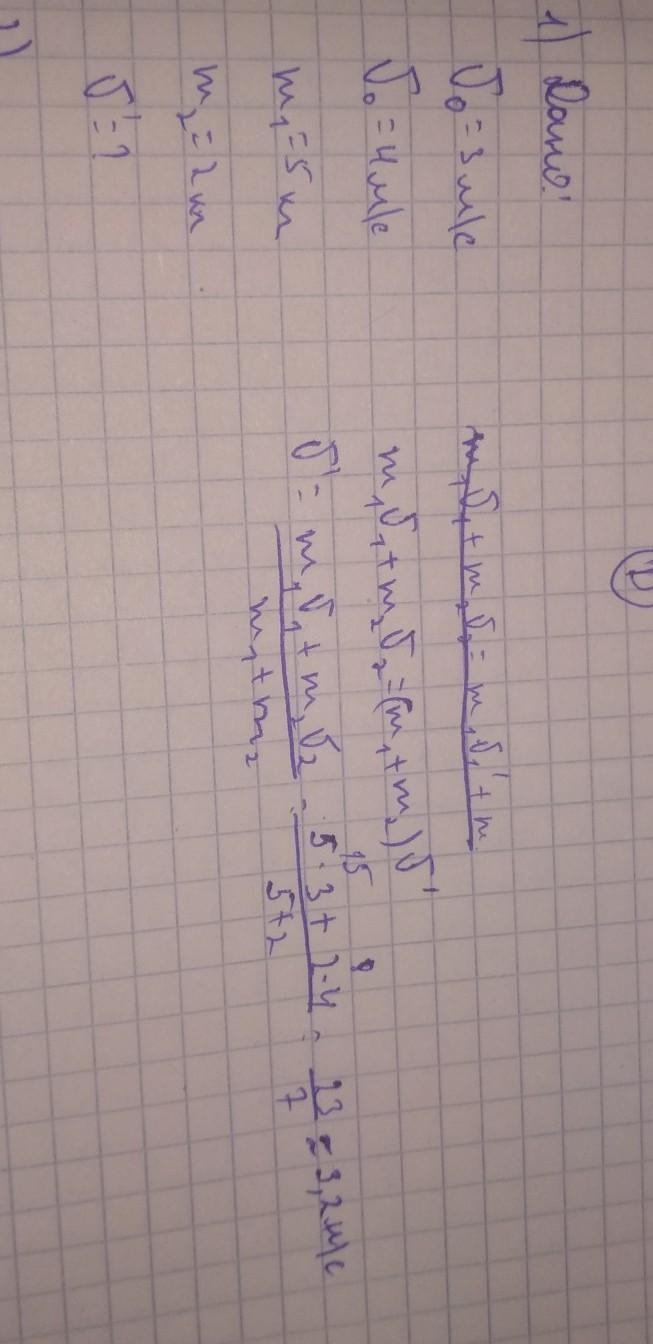 1) Дано:
V₀ = 3 м/с
V₀ = 4 м/с
m₁ = 5 т
m₂ = 2 т
V' = ?
m₁V₁ + m₂V₂ = m₁V₁' + m
m₁V₁ + m₂V₂ = (m₁ + m₂)V'
V' = (m₁V₁ + m₂V₂)/(m₁ + m₂) = (5·3 + 2·4)/(5+2) = 23/7 = 3,2 м/с
15 8
2)